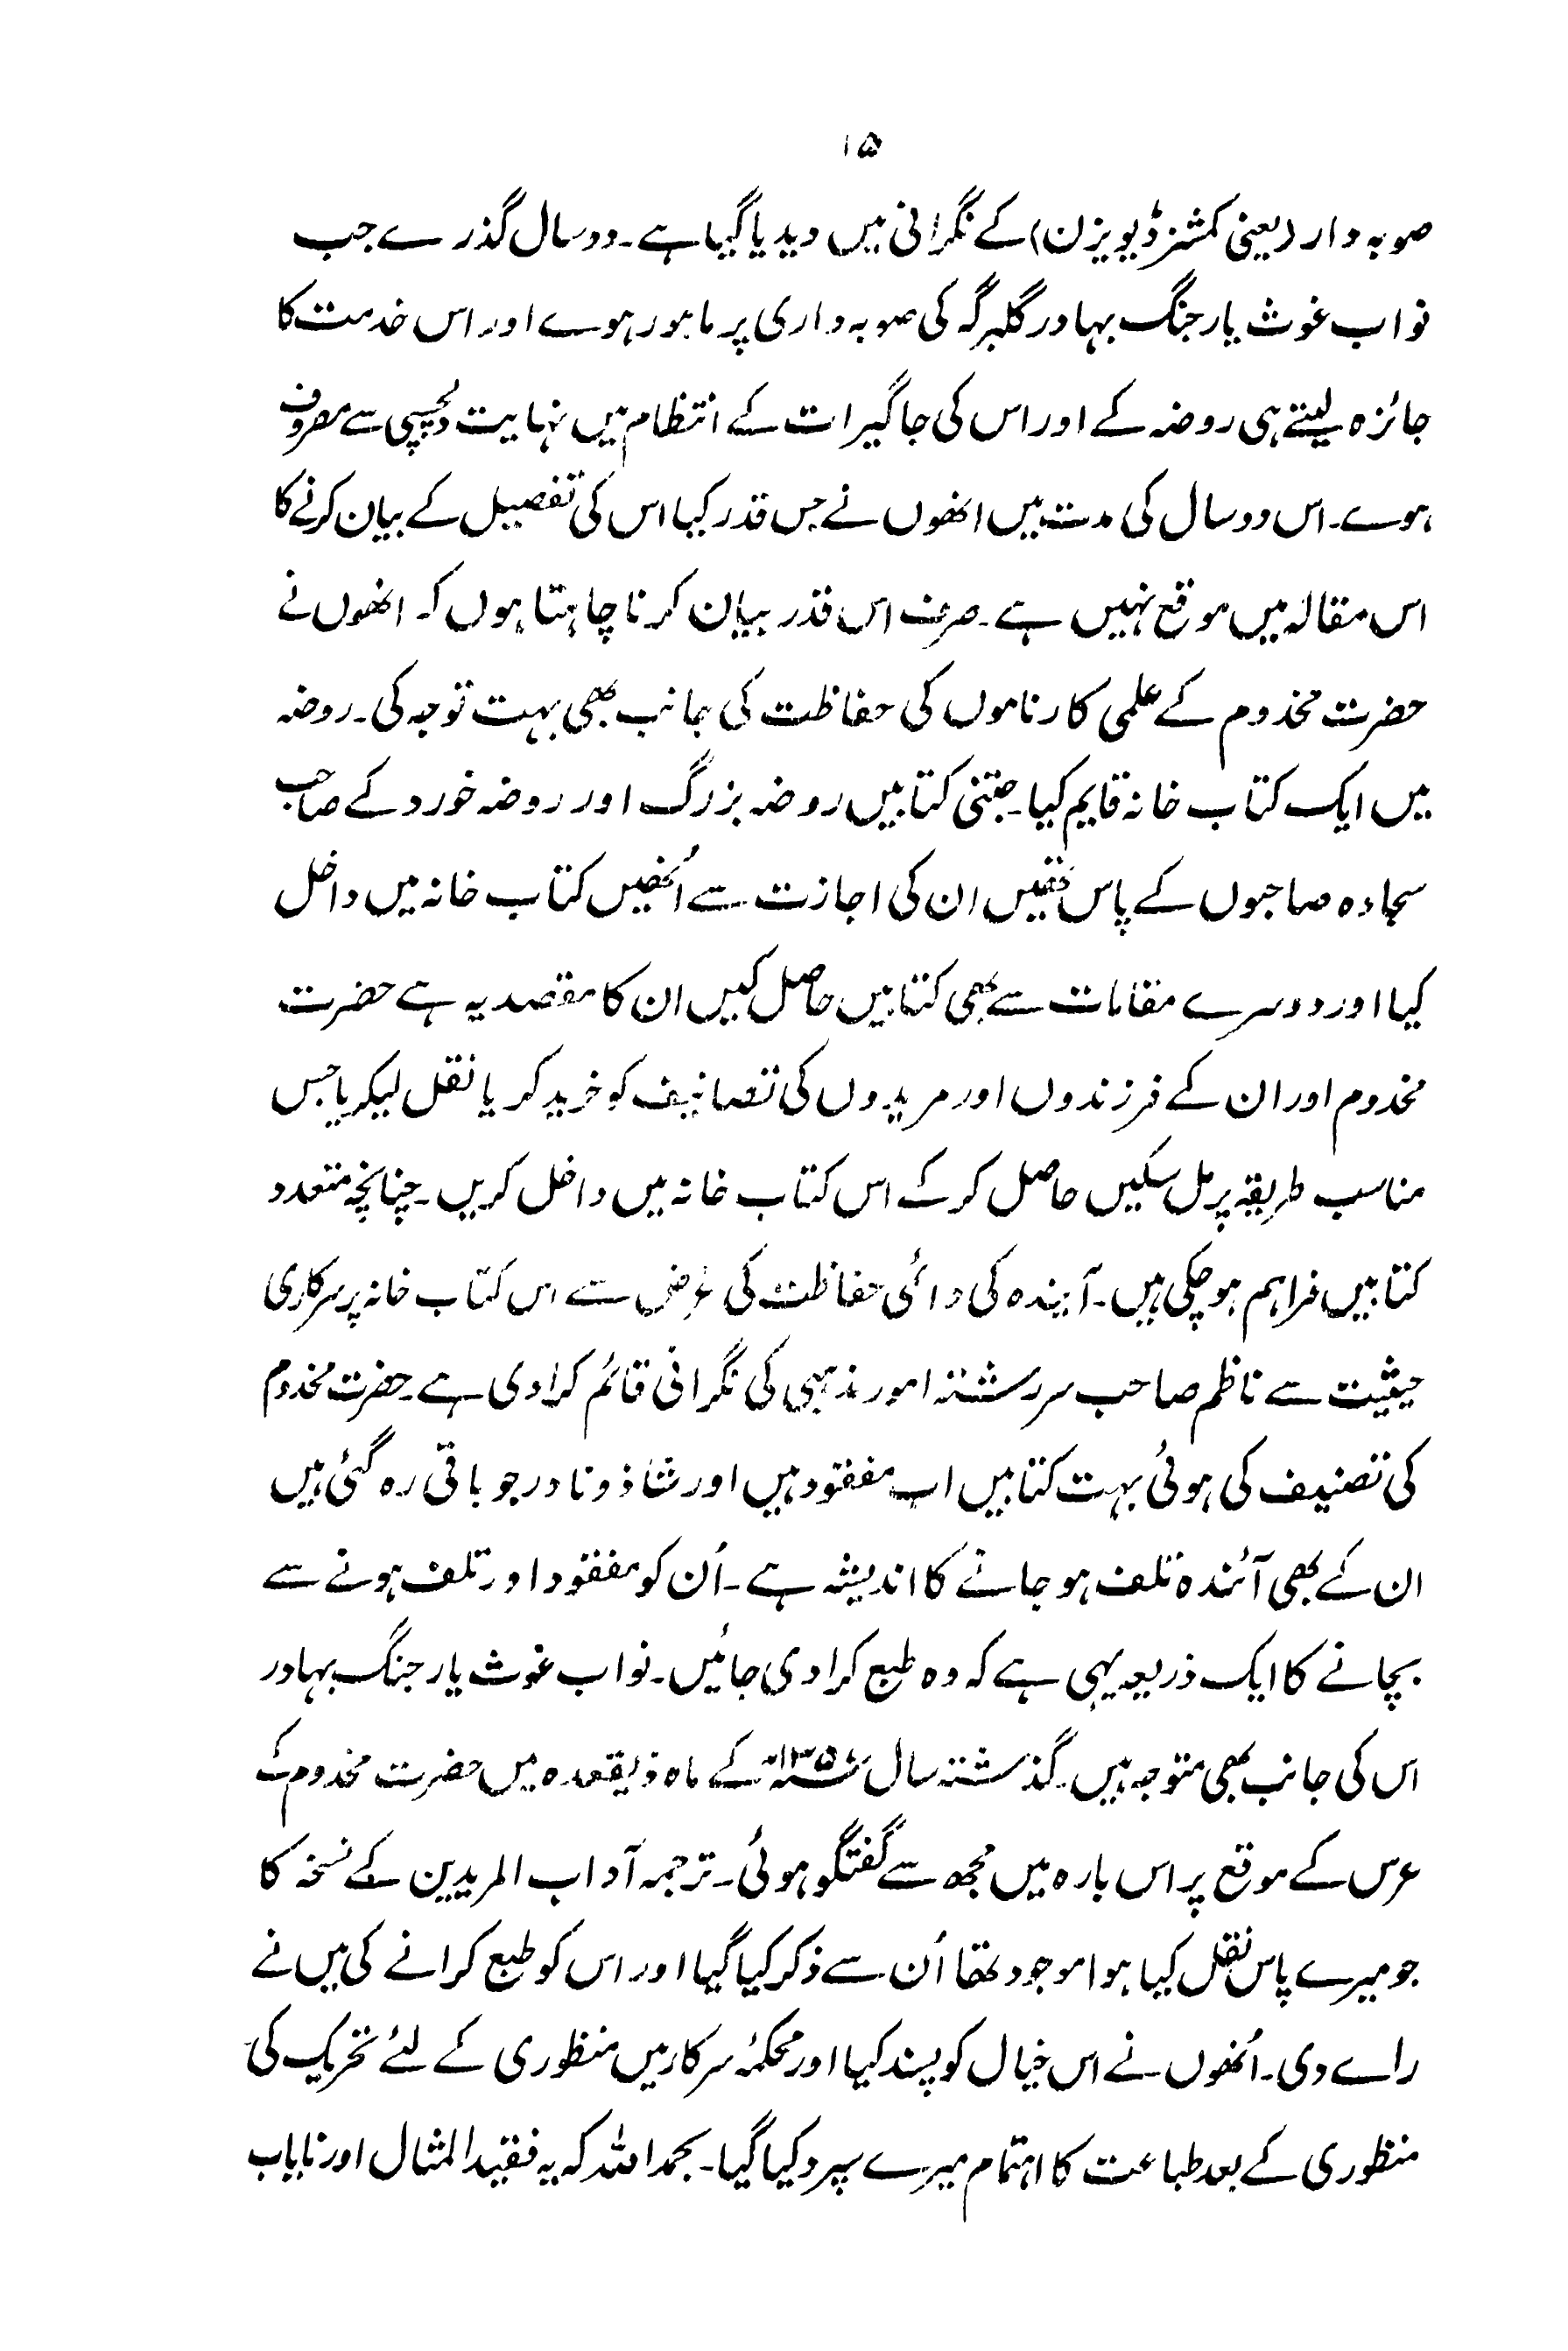 ۱۵
صوبہ دار (یعنی کمشنر ڈیویزن) کے نگرانی میں دیدیا گیا ہے۔ دو سال گذرے جب
نواب غوث یار جنگ بہادر گلبرگہ کی صوبہ داری پر مامور ہوے اور اس خدمت کا
جائزہ لیتے ہی روضہ کے اور اس کی جاگیرات کے انتظام میں نہایت دلچسپی سے مصروف
ہوے۔ اس دو سال کی مدت میں انھوں نے جس قدر کیا اس کی تفصیل کے بیان کرنے کا
اس مقالہ میں موقع نہیں ہے۔ صرف اس قدر بیان کرنا چاہتا ہوں کہ انھوں نے
حضرت مخدوم کے علمی کارناموں کی حفاظت کی جانب بھی بہت توجہ کی۔ روضہ
میں ایک کتاب خانہ قایم کیا۔ جتنی کتابیں روضہ بزرگ اور روضہ خورد کے صاحب
سجادہ صاحبوں کے پاس تھیں ان کی اجازت سے اُنھیں کتاب خانہ میں داخل
کیا اور دوسرے مقامات سے بھی کتابیں حاصل کیں ان کا مقصد یہ ہے حضرت
مخدوم اور ان کے فرزندوں اور مریدوں کی تصانیف کو خرید کر یا نقل لیکر یا جس
مناسب طریقہ پر مل سکیں حاصل کر کے اس کتاب خانہ میں داخل کریں۔ چنانچہ متعدد
کتابیں فراہم ہو چکی ہیں۔ آیندہ کی دائمی حفاظت کی غرض سے اس کتاب خانہ پر سرکاری
حیثیت سے ناظم صاحب سررشتہ امور مذہبی کی نگرانی قائم کرا دی ہے۔ حضرت مخدوم
کی تصنیف کی ہوئی بہت کتابیں اب مفقود ہیں اور شاذ و نادر جو باقی رہ گئی ہیں
ان کے بھی آئندہ تلف ہو جانے کا اندیشہ ہے۔ اُن کو مفقود اور تلف ہونے سے
بچانے کا ایک ذریعہ یہی ہے کہ وہ طبع کرا دی جائیں۔ نواب غوث یار جنگ بہادر
اس کی جانب بھی متوجہ ہیں۔ گذشتہ سال کے ماہ ذیقعدہ میں حضرت مخدوم کے
عرس کے موقع پر اس بارہ میں مجھ سے گفتگو ہوئی۔ ترجمہ آداب المریدین کے نسخہ کا
جو میرے پاس نقل کیا ہوا موجود تھا اُن سے ذکر کیا گیا اور اس کو طبع کرانے کی میں نے
راے دی۔ اُنھوں نے اس خیال کو پسند کیا اور محکمۂ سرکار میں منظوری کے لئے تحریک کی
منظوری کے بعد طباعت کا اہتمام میرے سپرد کیا گیا۔ بحمد اللہ کہ یہ فقید المثال اور نایاب